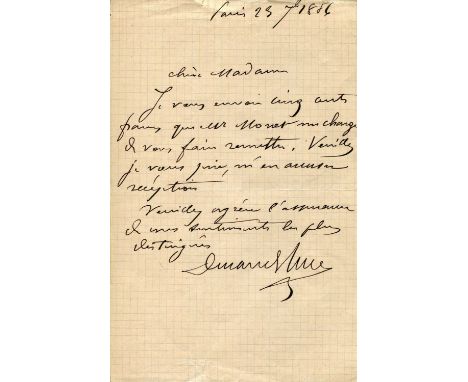 Paris 23 7b 1886
Chère Madame
Je vous envoie cinq cents
francs que Mr Monet me charge
de vous faire remettre. Veuillez
je vous prie, m'en accuser
réception
Veuillez agréer l'assurance
de mes sentiments les plus
distingués